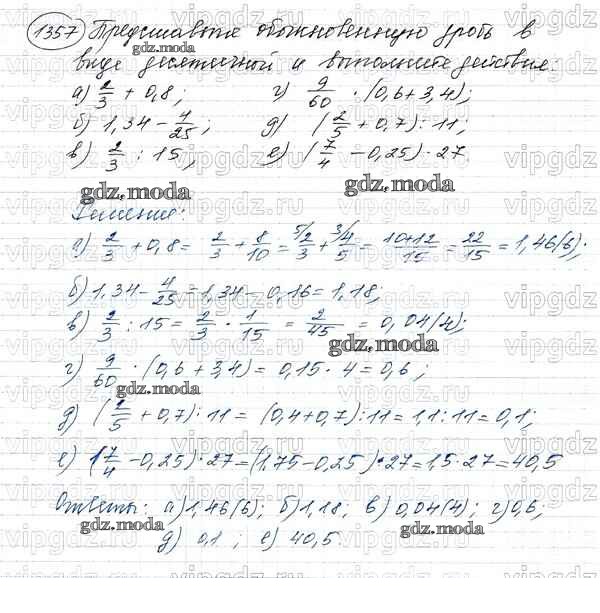 1357 Представьте обыкновенную дробь в
gdz.moda
виде десятичной и выполните действия:
а) 2/3 + 0,8; г) 9/60 · (0,6+3,4);
б) 1,34 - 4/25; д) (2/5 + 0,7) : 11;
в) 2/3 : 15; е) (7/4 - 0,25) · 27
gdz.moda gdz.moda
Решение:
а) 2/3 + 0,8 = 2/3 + 8/10 = 5/ 2/3 + 3/ 4/5 = 10+12/15 = 22/15 = 1,46(6);
б) 1,34 - 4/25 = 1,34 - 0,16 = 1,18;
в) 2/3 : 15 = 2/3 · 1/15 = 2/45 = 0,04(4);
gdz.moda
г) 9/60 · (0,6 + 3,4) = 0,15 · 4 = 0,6;
gdz.moda
д) (2/5 + 0,7) : 11 = (0,4+0,7) : 11 = 1,1 : 11 = 0,1;
е) (7/4 - 0,25) · 27 = (1,75 - 0,25) · 27 = 1,5 · 27 = 40,5
Ответы: а) 1,46(6); б) 1,18; в) 0,04(4); г) 0,6;
gdz.moda gdz.moda
д) 0,1; е) 40,5.
vipgdz.ru